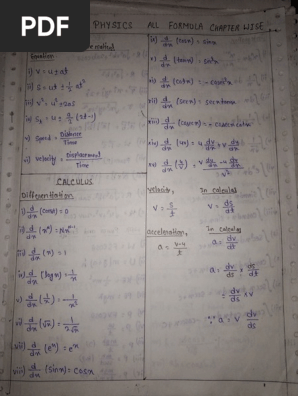 PDF
PHYSICS ALL FORMULA CHAPTER WISE
Equation
i) v = u ± at
ii) S = ut ± 1/2 at²
iii) v² = u² ± 2as
iv) Sₙ = u ± a/2 (2n-1)
v) Speed = Distance/Time
vi) Velocity = Displacement/Time
CALCULUS
Differentiation
i) d/dx (cons) = 0
ii) d/dx (xⁿ) = nxⁿ⁻¹
iii) d/dx (x) = 1
iv) d/dx (log x) = 1/x
v) d/dx (1/x) = -1/x²
vi) d/dx (√x) = 1/2√x
vii) d/dx (eˣ) = eˣ
viii) d/dx (sinx) = cosx
ix) d/dx (cosx) = sinx
x) d/dx (tanx) =
xi) d/dx (cotx) =
xii) d/dx (secx) = secx tanx
xiii) d/dx (cosecx) =
xiv) d/dx (uv) = u dv/dx + v du/dx
xv) d/dx (u/v) =
velocity, In calculus
v = s/t v = ds/dt
acceleration, In calculus
a = v-u/t a = dv/dt
a = dv/ds × ds/dt
= dv/ds × v
∵ a = v dv/ds